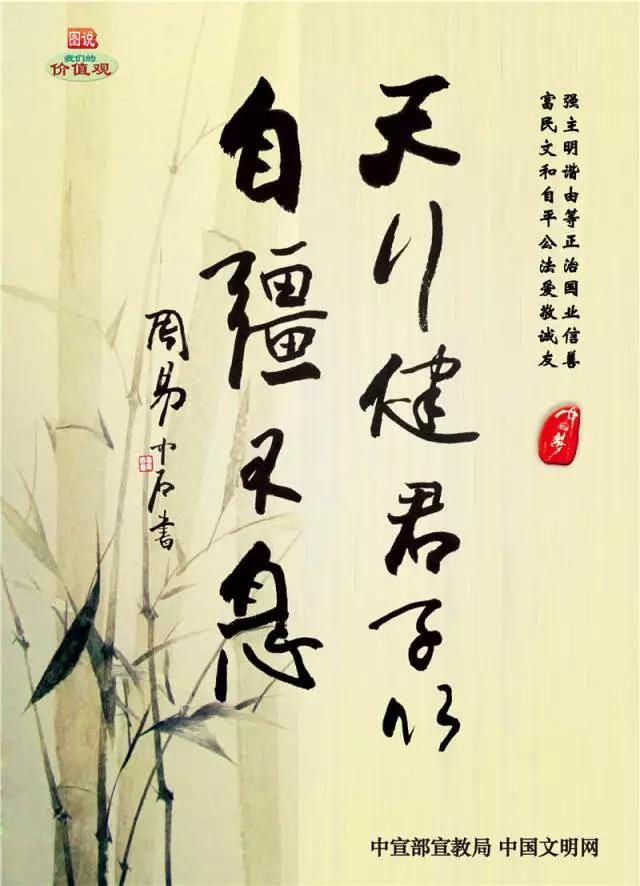 图说
我们的
价值观
富强
民主
文明
和谐
自由
平等
公正
法治
爱国
敬业
诚信
友善
中国梦
天行健君子以
自疆不息
周易中石书
中宣部宣教局 中国文明网